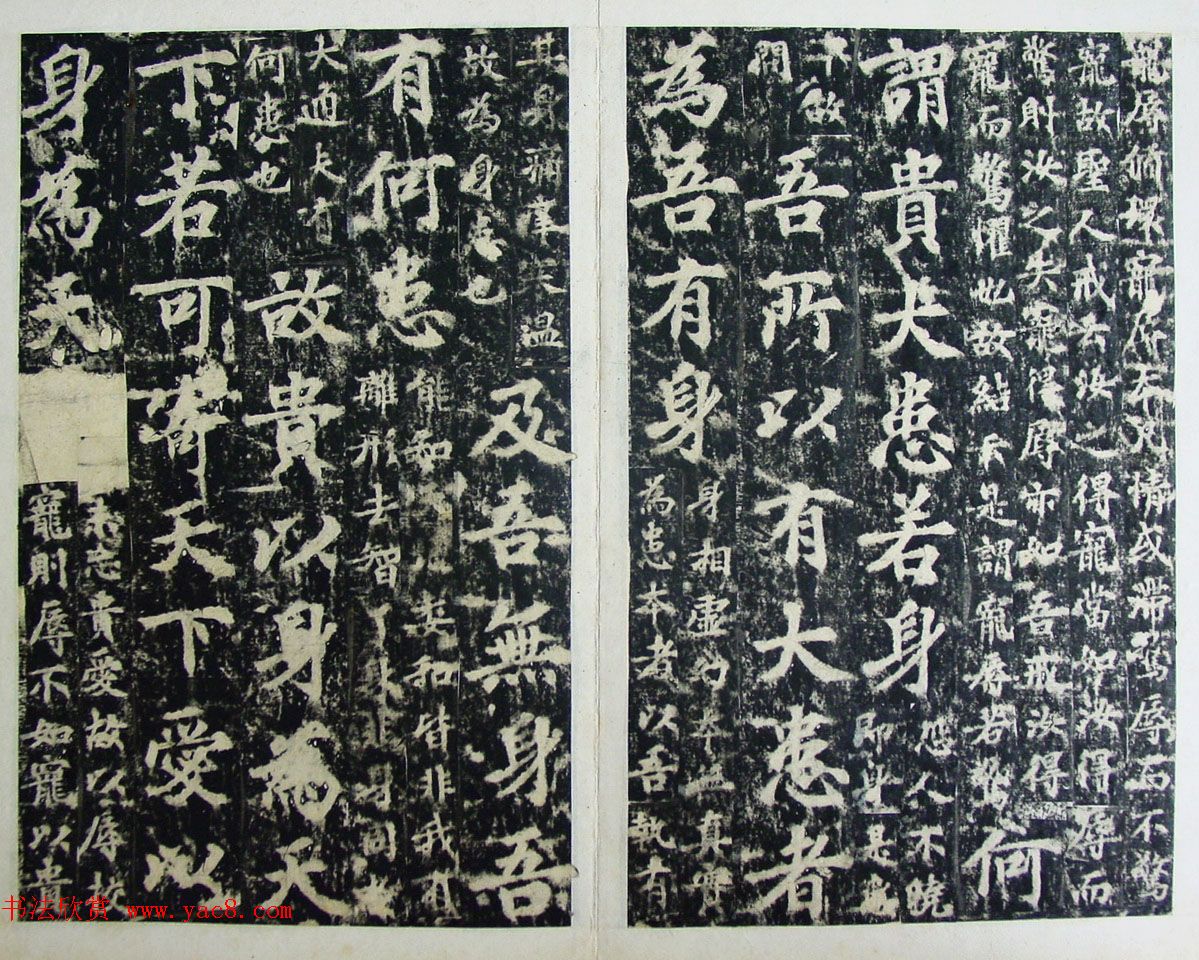 寵辱循環寵
情或滯驚辱而不驚
寵故聖人戒云汝之得寵當如汝得辱而
驚則汝之失寵得辱亦如吾戒汝得
寵而驚懼也故結云是謂寵辱若驚
何
謂貴大患若身
恐人不曉
即此是
故
問
吾所以有大患者
為吾有身
身相虛幻本無真實
為患本者以吾執有
其身痛癢寒溫
故為身患也
及吾無身吾
有何患
能知委和皆非我有
離形去智了身非身同於
大通夫有
何患也
故貴以身為天
下若可寄天下愛以
身為天
未忘貴愛故以辱校
寵則辱不如寵以貴
书法欣赏 www.yac8.com